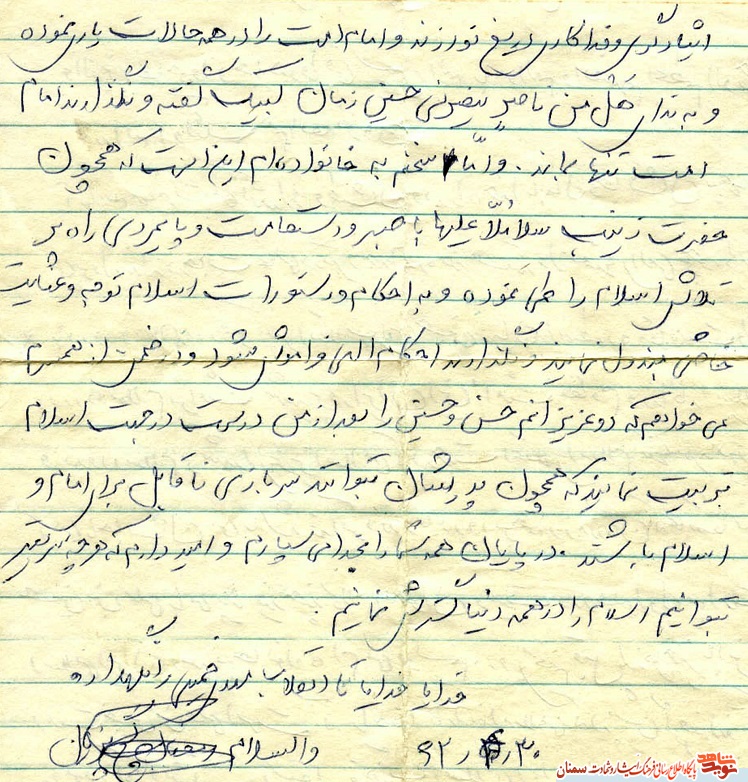 ایثارگری و فداکاری دریغ نورزند و امام امت را در همه حالات یاری نموده
و به ندای هَل من ناصرٍ ینصرنی حسین زمان لبیک گفته و نگذارند امام
امت تنها بماند. و امّا سخنم به خانواده‌ام این است که همچون
حضرت زینب سلام‌اللّه علیها با صبر و استقامت و پایمردی راه پر
تلاش اسلام را طی نموده و به احکام و دستورات اسلام توجه و عنایت
خاصی مبذول نمایند و نگذارند احکام الهی فراموش شود و در ضمن از همسرم
می‌خواهم که دو عزیزانم حسن و حسین را بعد از من درست در جهت اسلام
تربیت نمایند که همچون پدرشان بتوانند سربازی ناقابل برای امام و
اسلام باشند. در پایان همه شما را بخدا می‌سپارم و امیدوارم که هر چه سریعتر
بتوانیم اسلام را در همه دنیا گسترش نمائیم.
خدایا خدایا تا انقلاب مهدی خمینی را نگهدار
والسلام
۶۲
۳۰
نوید شاهد
پایگاه اطلاع رسانی فرهنگ ایثار و شهادت سمنان